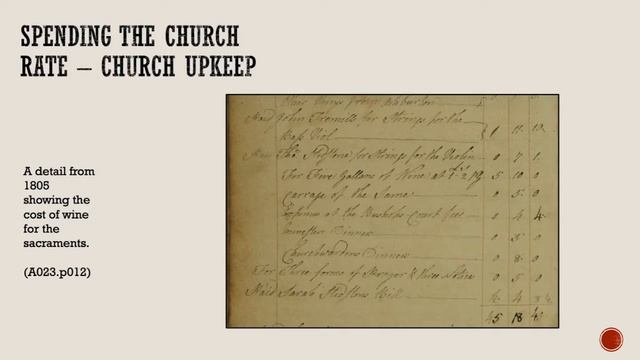 SPENDING THE CHURCH
RATE – CHURCH UPKEEP
A detail from
1805
showing the
cost of wine
for the
sacraments.
(A023.p012)
for Strings for the
Bass Viol 1 11
for Strings for the Violin 0 7 1
For Five Gallons of Wine at 5 10 0
Carrage of the Same 0 5 0
Expence at the Court fees 0 4 4
Dinner 0 5 0
Churchwardens Dinner 0 8 0
For Three forms of Prayer & three 0 5 0
Paid Sarah Bill 4
45 18